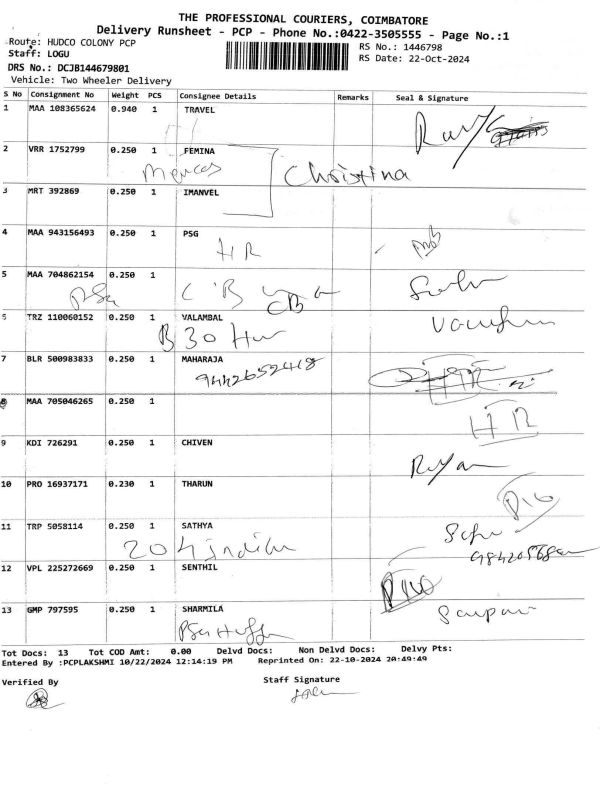 THE PROFESSIONAL COURIERS, COIMBATORE
Delivery Runsheet - PCP - Phone No.:0422-3505555 - Page No.:1
Route: HUDCO COLONY PCP
RS No.: 1446798
Staff: LOGU
RS Date: 22-Oct-2024
DRS No.: DCJB144679801
Vehicle: Two Wheeler Delivery
S No Consignment No Weight PCS Consignee Details Remarks Seal & Signature
1 MAA 108365624 0.940 1 TRAVEL
2 VRR 1752799 0.250 1 FEMINA
Christina
3 MRT 392869 0.250 1 IMANVEL
4 MAA 943156493 0.250 1 PSG
HR
5 MAA 704862154 0.250 1
CB
5 TRZ 110060152 0.250 1 VALAMBAL
B 30
7 BLR 500983833 0.250 1 MAHARAJA
9442652418
8 MAA 705046265 0.250 1
HR
9 KDI 726291 0.250 1 CHIVEN
10 PRO 16937171 0.230 1 THARUN
11 TRP 5058114 0.250 1 SATHYA
204
12 VPL 225272669 0.250 1 SENTHIL
13 GMP 797595 0.250 1 SHARMILA
Tot Docs: 13 Tot COD Amt: 0.00 Delvd Docs: Non Delvd Docs: Delvy Pts:
Entered By :PCPLAKSHMI 10/22/2024 12:14:19 PM Reprinted On: 22-10-2024 20:49:49
Verified By
Staff Signature